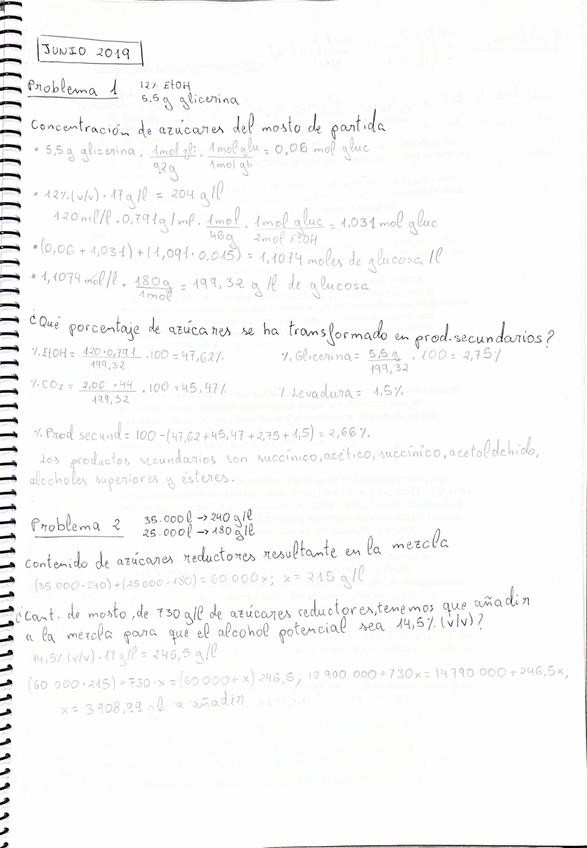 JUNIO 2019
Problema 1 12% EtOH
5,5g glicerina
Concentración de azúcares del mosto de partida
• 5,5g glicerina · 1mol gli / 92g · 1mol glu / 1mol gli = 0,06 mol gluc
• 12% (v/v) · 17 g/l = 204 g/l
120ml/l · 0,791g/ml · 1mol / 46g · 1mol gluc / 2mol EtOH = 1,031 mol gluc
• (0,06 + 1,031) + (1,091 · 0,015) = 1,1074 moles de glucosa /l
• 1,1074 mol/l · 180g / 1mol = 199,32 g/l de glucosa
¿Qué porcentaje de azúcares se ha transformado en prod. secundarios?
% EtOH = 120·0,791 / 199,32 · 100 = 47,62% % Glicerina = 5,5g / 199,32 · 100 = 2,75%
% CO2 = 2,06 · 44 / 199,32 · 100 = 45,47% % Levadura = 1,5%
% Prod secund = 100 - (47,62 + 45,47 + 2,75 + 1,5) = 2,66%
Los productos secundarios son succínico, acético, succínico, acetaldehído,
alcoholes superiores y ésteres.
Problema 2 35.000l → 240 g/l
25.000l → 180 g/l
Contenido de azúcares reductores resultante en la mezcla
(35 000 · 240) + (25000 · 180) = 60 000x; x = 215 g/l
¿Cant. de mosto, de 730 g/l de azúcares reductores, tenemos que añadir
a la mezcla para que el alcohol potencial sea 14,5% (v/v)?
14,5% (v/v) · 17 g/l = 246,5 g/l
(60 000 · 215) + 730 · x = (60000 + x) · 246,5; 12 900 000 + 730x = 14 790 000 + 246,5x,
x = 3908,99 l a añadir